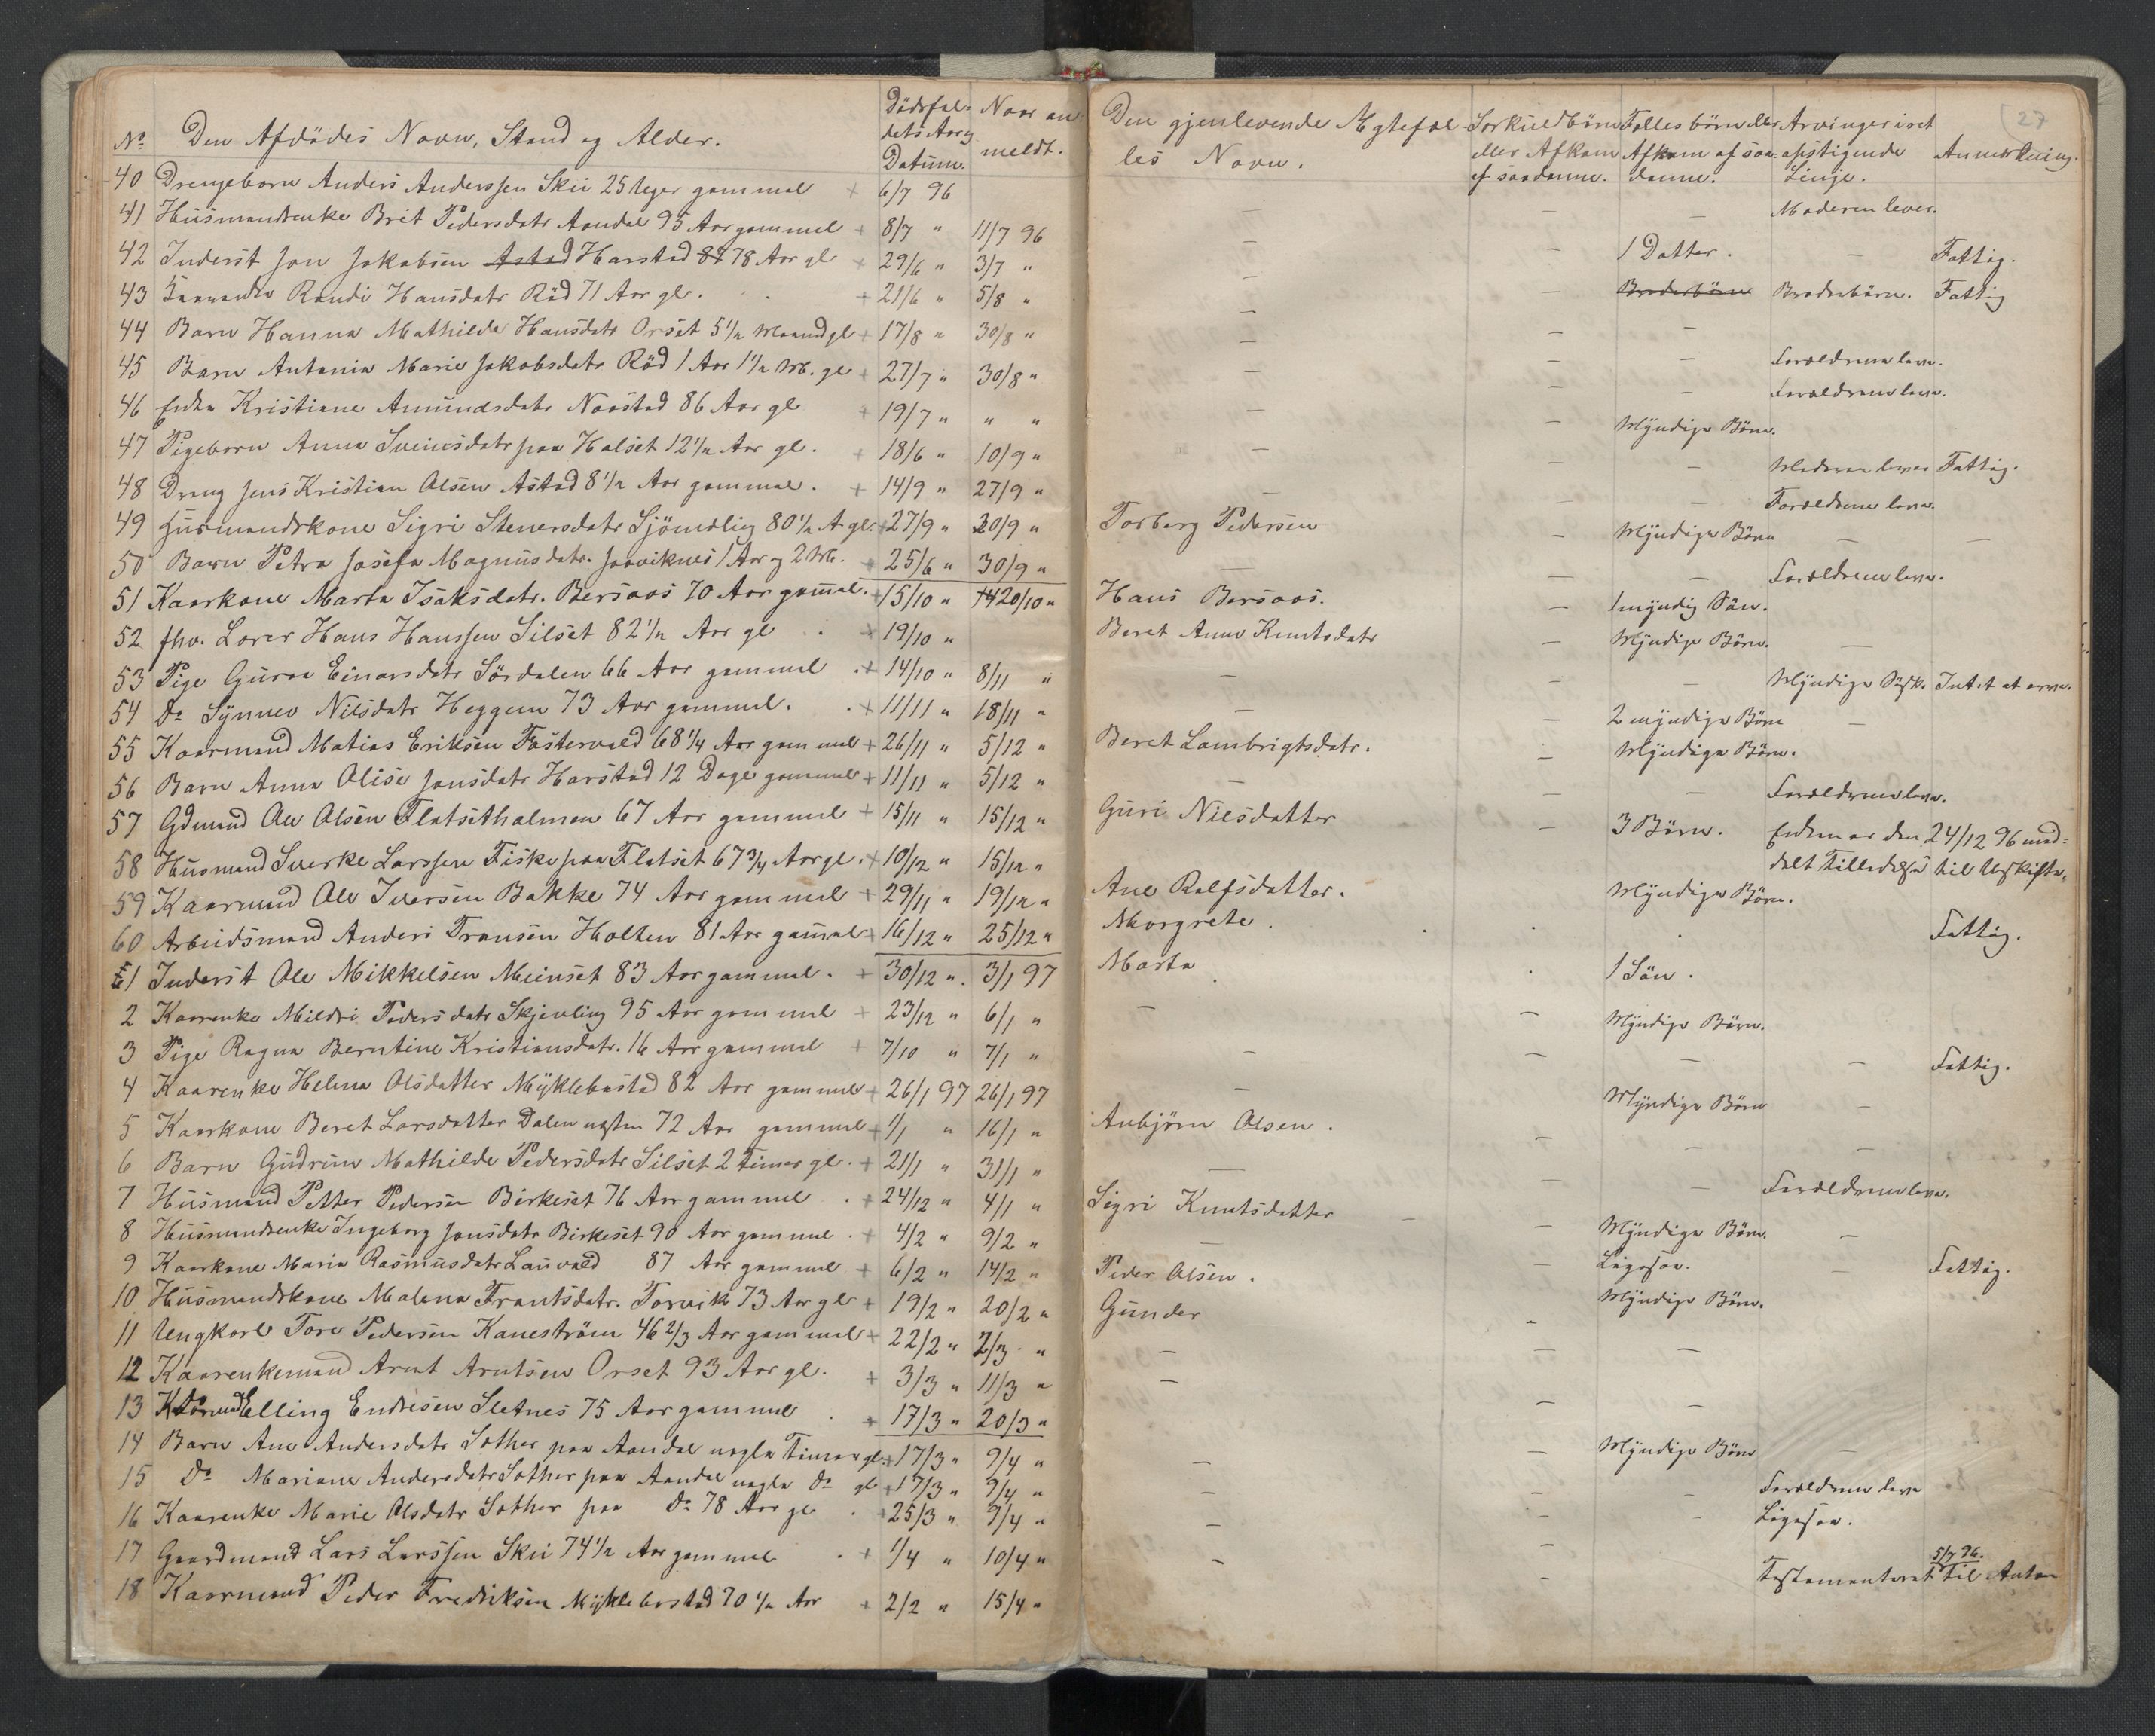 27
No Den Afdödes Navn, Stand og Alder. Dödsfal- Naar an-
dets Aar og meldt.
Datum.
40 Drengebarn Anders Anderssen Skei 25 Uger gammel + 6/7 96
41 Husmandsenke Brit Pedersdatr Aandal 95 Aar gammel + 8/7 " 11/7 96
42 Inderst Jon Jakobsen Astad Harstad 87 78 Aar gl + 29/6 " 3/7 "
43 Randi Hansdatr Röd 71 Aar gl. + 21/6 " 5/8 "
44 Barn Hanna Mathilde Hansdatr Orset 5 1/2 Maaned gl + 17/8 " 30/8 "
45 Barn Antonie Marie Jakobsdatr Röd 1 Aar 1 1/2 M. gl + 27/7 " 30/8 "
46 Enke Kristiane Amundsdatr Naastad 86 Aar gl + 19/7 " " "
47 Pigebarn Anna Sveinsdatr paa Halset 12 1/2 Aar gl. + 18/6 " 10/9 "
48 Dreng Jens Kristian Olsen Astad 8 1/2 Aar gammel. + 14/9 " 27/9 "
49 Husmandskone Sigri Stenersdatr Sjömdlig 80 1/2 A gl. + 27/9 " 30/9 "
50 Barn Petra Josefa Magnusdatr. Jaaviknes 1 Aar og 2 M. + 25/6 " 30/9 "
51 Kaarkone Marta Isaksdatr. Bersaas 70 Aar gammel. + 15/10 " 20/10 "
52 fhv. Lærer Hans Hanssen Silset 82 1/2 Aar gl + 19/10 "
53 Pige Guroa Einarsdatr Sördalen 66 Aar gammel + 14/10 " 8/11 "
54 Do Synnev Nilsdatr Heggem 73 Aar gammel. + 11/11 " 18/11 "
55 Kaarmand Matias Eriksen Fostervold 68 1/4 Aar gammel + 26/11 " 5/12 "
56 Barn Anna Olise Jonsdatr Harstad 12 Dage gammel + 11/11 " 5/12 "
57 Gdmand Ole Olsen Flatsetholmen 67 Aar gammel + 15/11 " 15/12 "
58 Husmand Sverke Larssen Fiske paa Flatset 67 3/4 Aar gl. + 10/12 " 15/12 "
59 Kaarmand Ole Iversen Bakke 74 Aar gammel + 29/11 " 19/12 "
60 Arbeidsmand Anders Transen Holten 81 Aar gammel + 16/12 " 25/12 "
1 Inderst Ole Mikkelsen Meinset 83 Aar gammel. + 30/12 " 3/1 97
2 Kaarenke Mildri Pedersdatr Skjevling 95 Aar gammel + 23/12 " 6/1 "
3 Pige Ragna Berntine Kristiansdatr. 16 Aar gammel + 7/10 " 7/1 "
4 Kaarenke Helena Olsdatter Myklebostad 82 Aar gammel + 26/1 97 26/1 97
5 Kaarkone Beret Larsdatter Dalen næsten 72 Aar gammel + 1/1 " 16/1 "
6 Barn Gudrun Mathilde Pedersdatr Silset 2 Timer gl. + 21/1 " 31/1 "
7 Husmand Petter Pedersen Birkeset 76 Aar gammel + 24/12 " 4/1 "
8 Husmandsenke Ingeborg Jonsdatr Birkeset 90 Aar gammel. + 4/2 " 9/2 "
9 Kaarkone Maria Rasmusdatr Lauvold 87 Aar gammel + 6/2 " 14/2 "
10 Husmandskone Malena Frantsdatr. Torvik 73 Aar gl + 19/2 " 20/2 "
11 Ungkarl Tore Pedersen Kaneström 46 2/3 Aar gammel + 22/2 " 2/3 "
12 Kaarenkemand Arnt Arntsen Orset 93 Aar gl. + 3/3 " 11/3 "
13 Elling Endresen Sletnes 75 Aar gammel + 17/3 " 20/3 "
14 Barn Ane Andersdatr Sother paa Aandal nogle Timer gl. + 17/3 " 9/4 "
15 Do Mariane Andersdatr Sother paa Aandal nogle Do gl + 17/3 " 9/4 "
16 Kaarenke Marie Olsdatr Sother paa Do 78 Aar gl + 25/3 " 9/4 "
17 Gaardmand Lars Larssen Skei 74 1/2 Aar gammel + 1/4 " 10/4 "
18 Kaarmand Peder Fredriksen Myklebostad 70 1/2 Aar + 2/2 " 15/4 "
Den gjenlevende Ægtefæl- Særkuldbörn Fælles börn eller Arvinger i ret
les Navn. eller Afkom Afkom af saa- opstigende Anmærkning.
af saadanne. danne. Linje.
— — — Moderen lever.
— — 1 Datter. — Fattig.
— — Broderbörn Broderbörn. Fattig
— — —
— — — Forældrene leve.
— — Forældrene leve.
— — Myndige Börn.
— — — Moderen lever Fattig.
— — Forældrene leve.
Torberg Pedersen — Myndige Börn — —
— — — Forældrene leve.
Hans Bersaas. — 1 myndig Sön.
Beret Anne Knutsdatr — Myndige Börn. —
— — — Myndige Södsk. Intet at arve.
— — 2 myndige Börn —
Beret Lambrigtsdatr. — Myndige Börn.
— — — Forældrene leve.
Guri Nilsdatter — 3 Börn. Enken er den 24/12 96 med-
delt Tilladelse til Uskifte.
Ane Rolfsdatter. Myndige Börn.
Margrete . . . Fattig.
Marta . . 1 Sön.
— — Myndige Börn.
— — — — Fattig.
— Myndige Börn —
Anbjörn Olsen. — — —
— — — Forældrene leve.
Sigri Knutsdatter — — Myndige Börn. —
— — — Fattig.
Peder Olsen. Myndige Börn.
Gunder -
— — —
— — —
— Myndige Börn —
— - - Forældrene leve
— - - Ligesaa.
— - 5/7 76.
- - Testamenteret til Anton